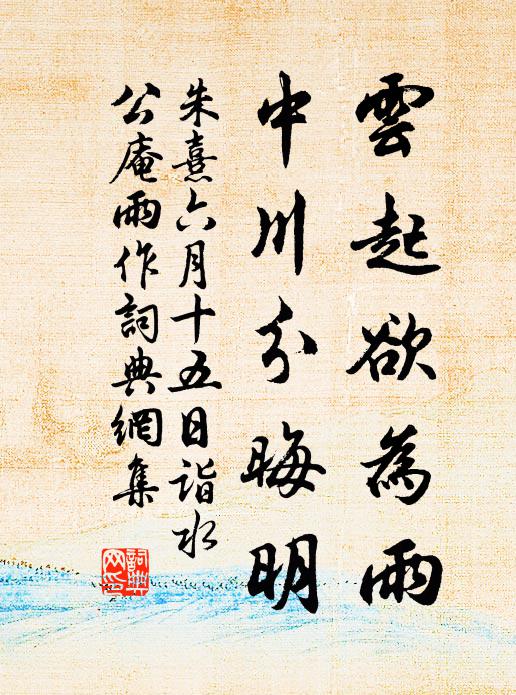 雲起欲為雨
中川分晦明
朱熹六月十五日詣水
公庵雨作詞典網集